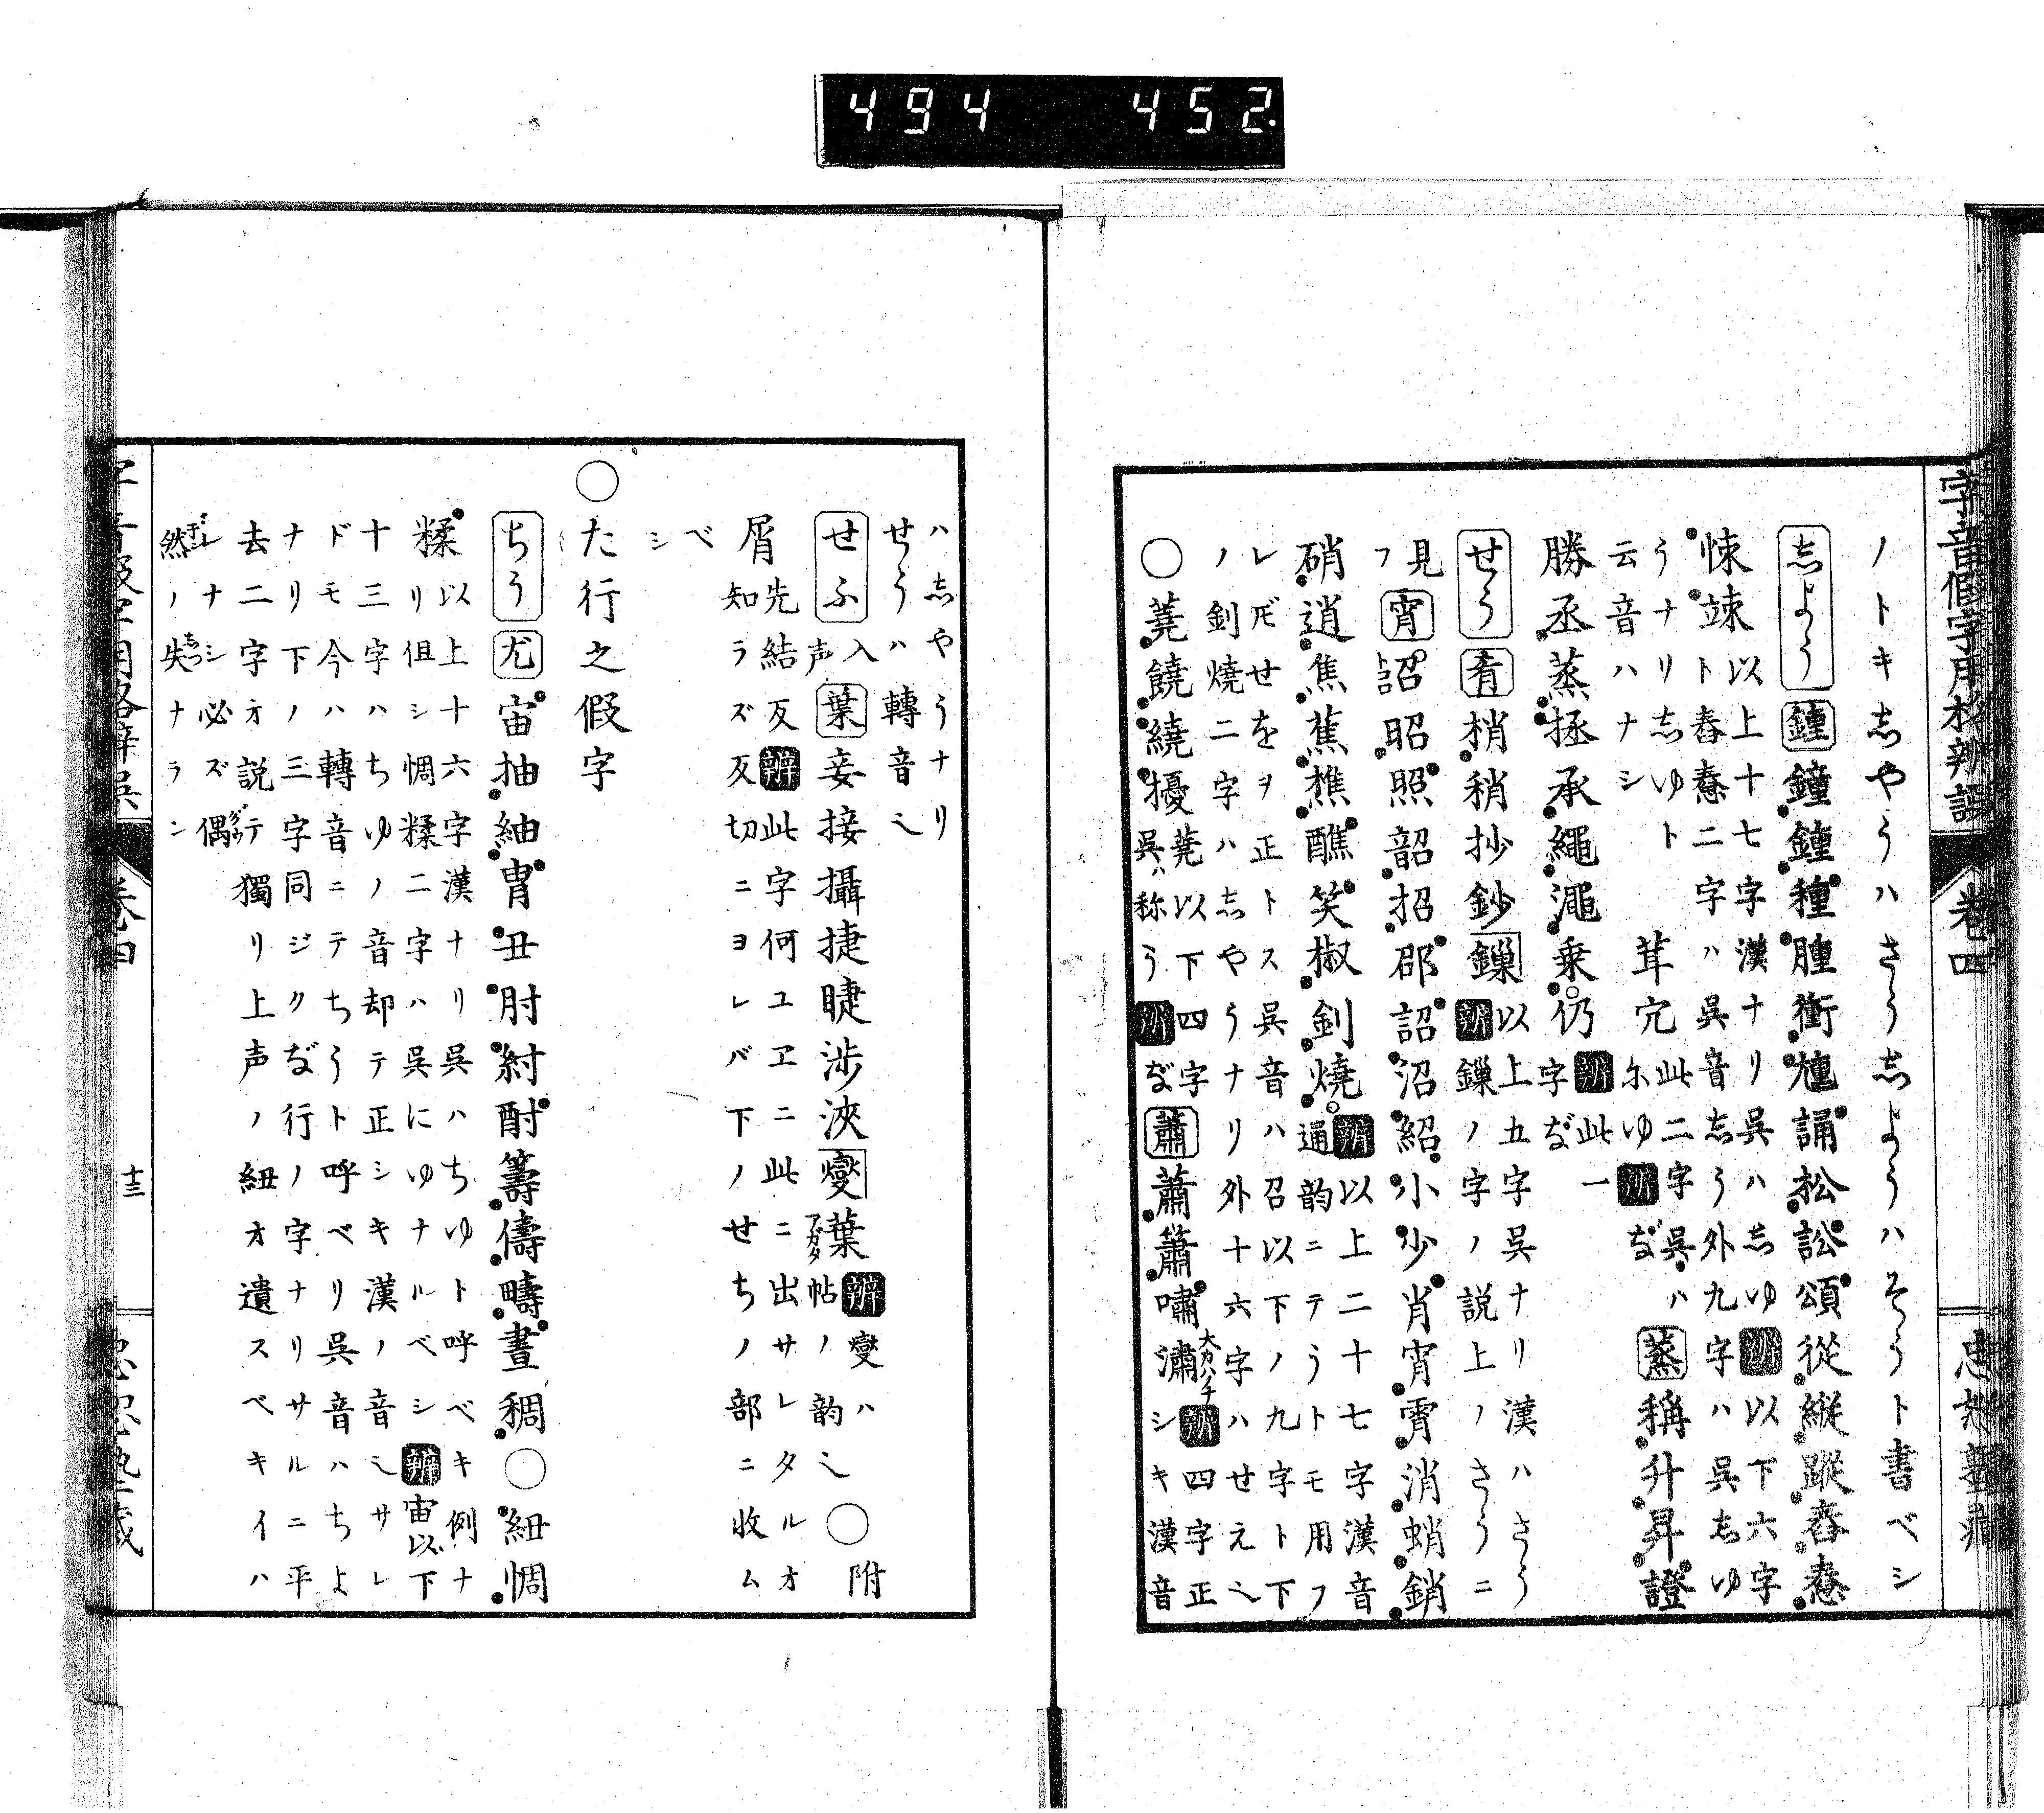 494 452
字音假字用格辨誤
卷四
ノトキ志やうハさう志ようハそうト書ベシ
志よう 鍾 鐘鍾種腫衝尰誦松訟頌從縱蹤舂憃
悚竦 以上十七字漢ナリ呉ハ志ゆ 辨 以下六字
ト舂憃二字ハ呉音志う外九字ハ呉志ゆ
うナリ志ゆト
云音ハナシ
茸宂 此二字呉ハ
尓ゆ 辨 ぢ
蒸 稱升昇證
勝丞蒸拯承繩澠乗仍 辨 此一
字ぢ
せう 肴 梢稍抄鈔鏁 以上五字呉ナリ漢ハさう
辨 鏁ノ字ノ説上ノさうニ
見
フ
宵 詔昭照韶招邵詔沼紹小少肖宵霄消蛸銷
硝逍焦蕉樵醮笑椒釗燒 辨 以上二十七字漢音
通韵ニテうトモ用フ
レ𪜈せをヲ正トス呉音ハ召以下ノ九字ト下
ノ釗燒二字ハ志やうナリ外十六字ハせえ〻
○蕘饒繞擾 蕘以下四字
呉ハ称う 辨 ぢ
蕭 蕭簫嘯潚 辨 四字正
シキ漢音
ハ志やうナリ
せうハ轉音〻
せふ 入声 葉 妾接攝捷睫渉浹燮葉 辨 燮ハ
帖ノ韵〻
○附
屑 先結反 辨 此字何ユヱニ此ニ出サレタルオ
知ラズ反切ニヨレバ下ノせちノ部ニ收ム
ベ
シ
○た行之假字
ちう 尤 宙抽紬冑丑肘紂酎籌儔疇晝稠○紐惆
糅 以上十六字漢ナリ呉ハちゆト呼ベキ例ナ
リ但シ惆糅二字ハ呉にゆナルベシ 辨 宙以下
十三字ハちゆノ音却テ正シキ漢ノ音〻サレ
ドモ今ハ轉音ニテちうト呼ベリ呉音ハちよ
ナリ下ノ三字同ジクぢ行ノ字ナリサルニ平
去二字オ説テ獨リ上声ノ紐オ遺スベキイハ
レナシ必ズ偶
然ノ失ナラン
卷四
十三